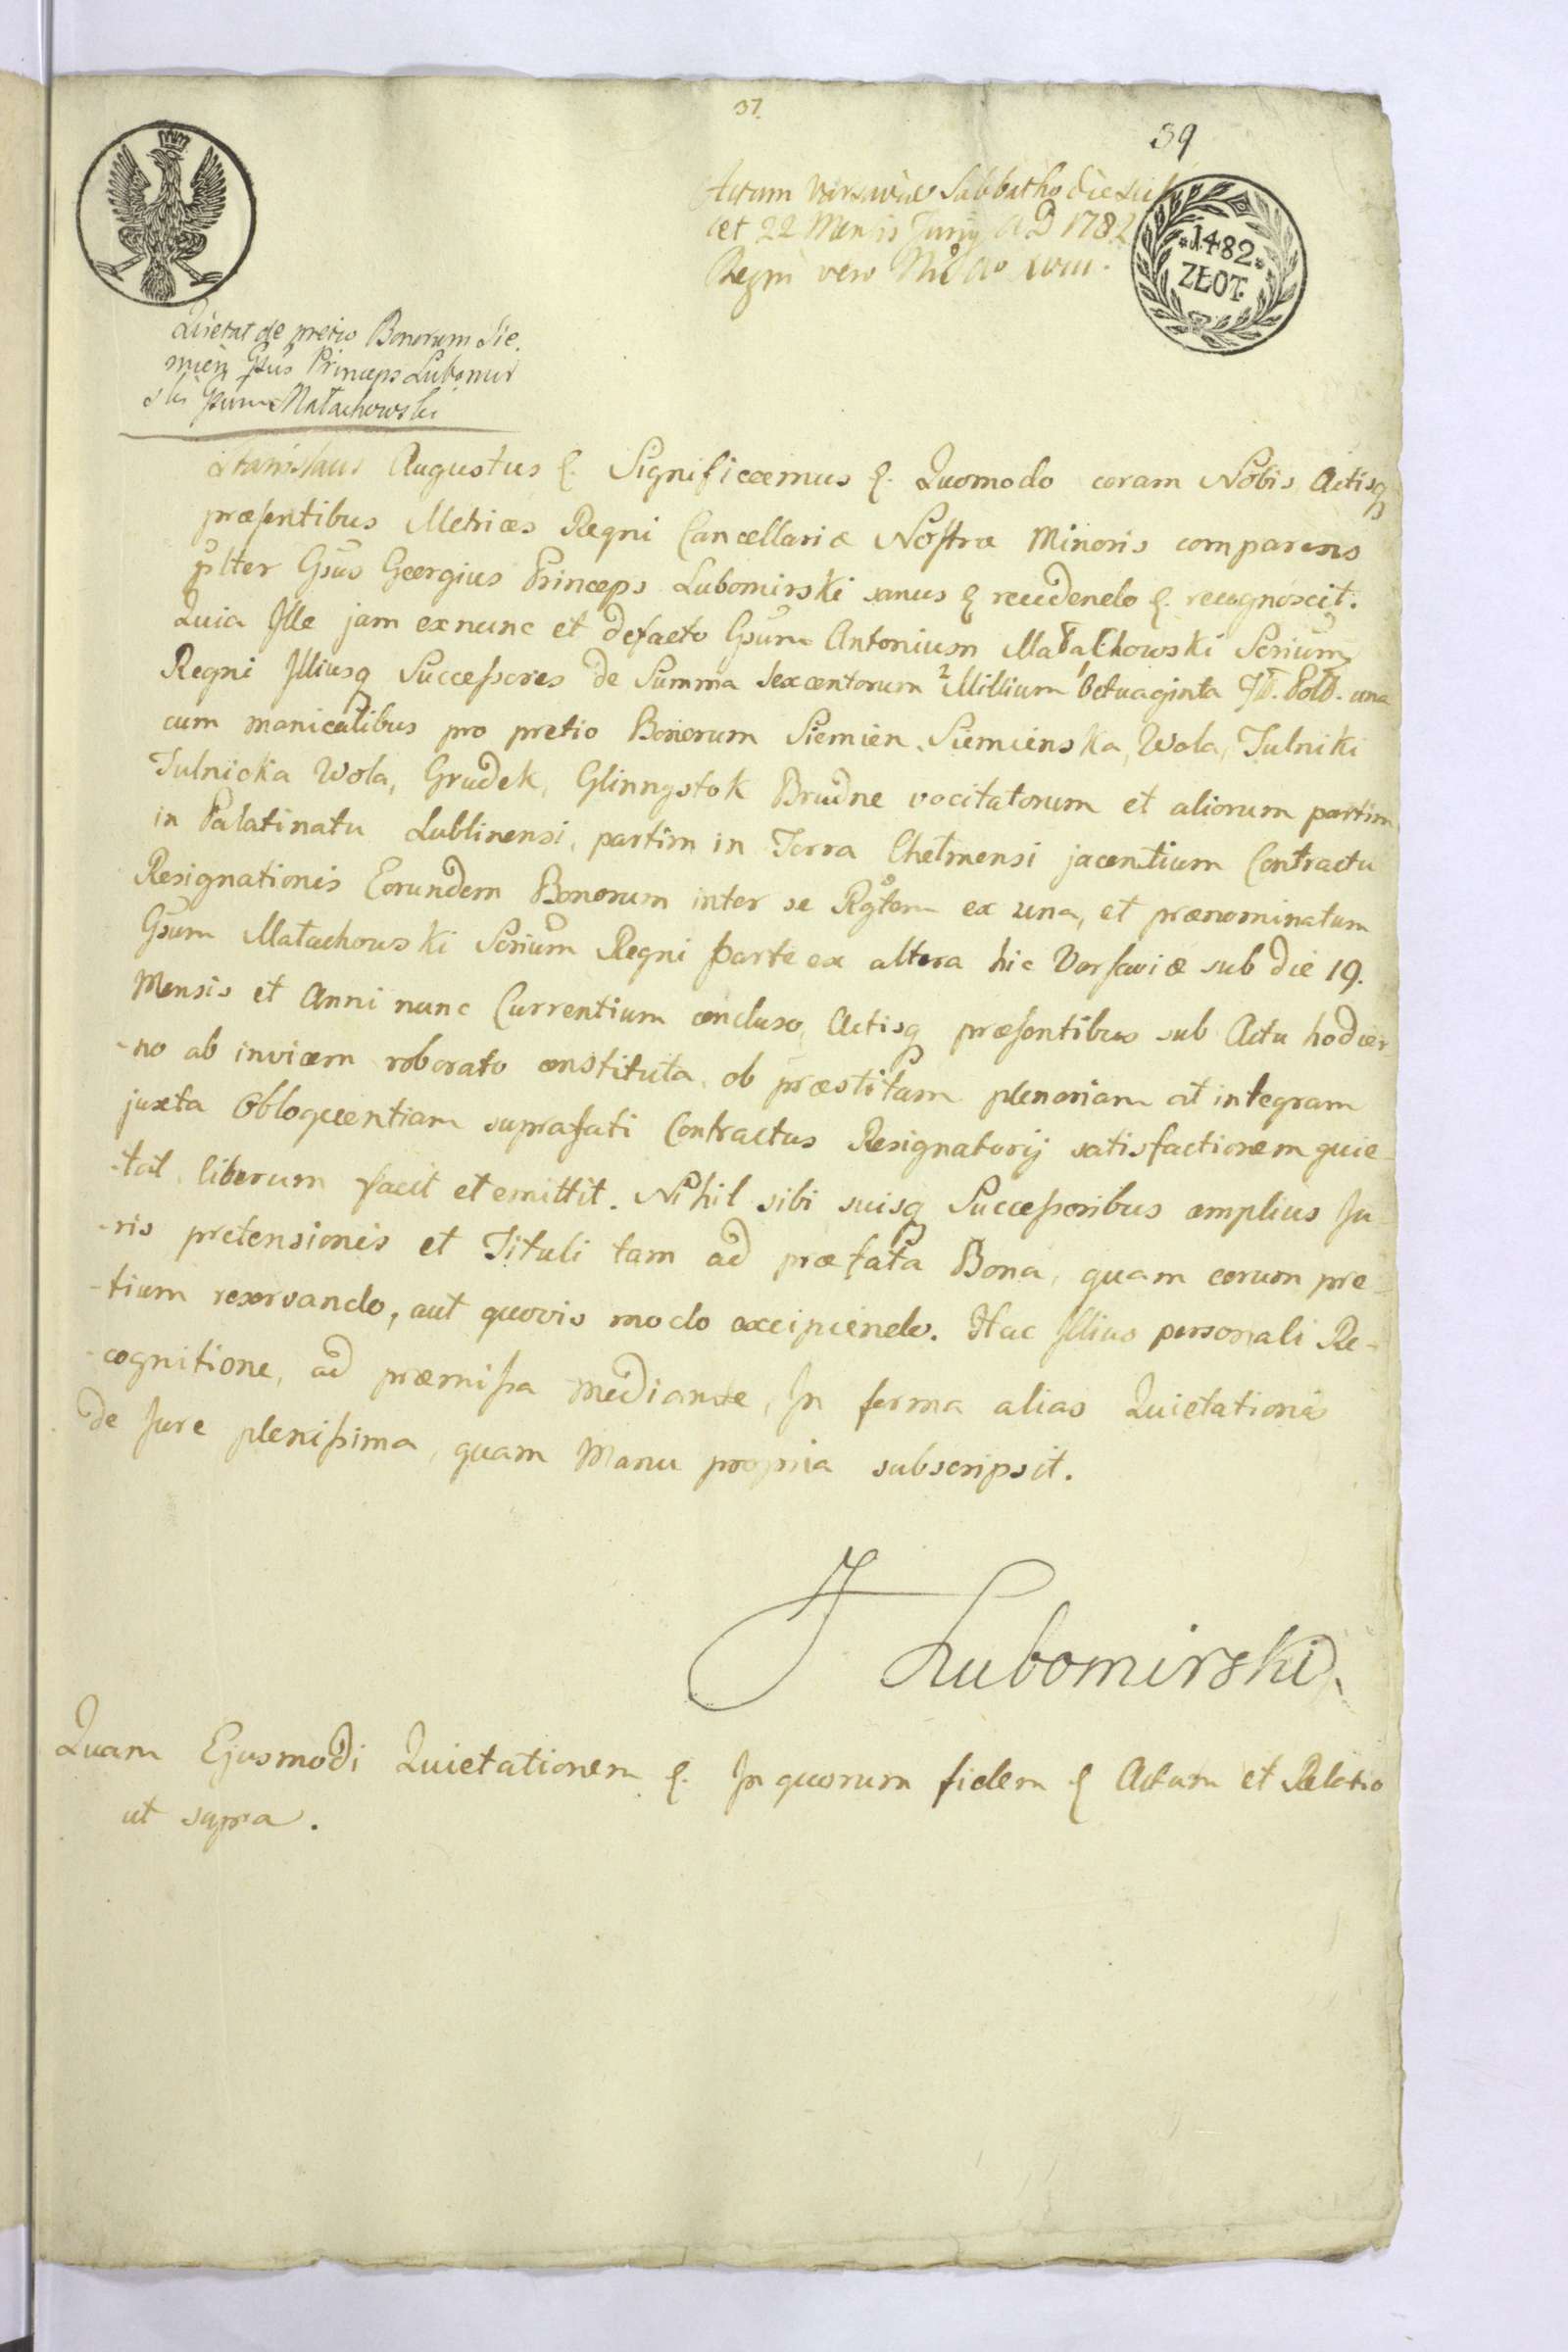 37.
39
Actum Varsaviæ Sabbatho die scili
cet 22 Mensis Junij AD 1782
Regni vero Nri Ao XVIII.
*1482*
ZŁOT.
Quietat de pretio Bonorum Sie.
mien Gsus Princeps Lubomir
ski Gsum Małachowski
Stanislaus Augustus &. Significamus &. Quomodo coram Nobis, Actisq
præsentibus Metrices Regni Cancellariæ Nostræ Minoris comparens
pslter Gsus Georgius Princeps Lubomirski sanus & recedendo &. recognoscit.
Quia Ille jam exnunc et defacto Gsum Antonium Małachowski Scrium
Regni Illiusq Successores de Summa sexcentorum 2 Millium 1 Octuaginta fl. Poll. una
cum manicalibus pro pretio Bonorum Siemien, Siemienska, Wola, Tulniki
Tulnicka Wola, Grudek, Glinnystok Brudne vocitatorum et aliorum partim
in Palatinatu Lublinensi, partim in Terra Chełmensi jacentium Contractu
Resignationis Eorundem Bonorum inter se Rgtem ex una, et prænominatum
Gsum Małachowski Scrium Regni parte ex altera hic Varsaviæ sub die 19.
Mensis et Anni nunc Currentium concluso, Actisq præsentibus sub Actu hodier-
-no ab invicem roborato constituta, ob præstitam plenariam et integram
juxta Obloquentiam suprafati Contractus Resignatorij satisfactionem quie-
-tat, liberum facit et emittit. Nihil sibi suisq Successoribus amplius Ju-
-ris pretensionis et Tituli tam ad præfata Bona, quam eorum pre-
-tium reservando, aut quovis modo excipiendo. Hac Illius personali Re-
-cognitione, ad præmissa mediante, In forma alias Quietationis
de Jure plenissima, quam Manu propria subscripsit.
J Lubomirski
Quam Ejusmodi Quietationem &. In quorum fidem & Actum et Relatio
ut supra.